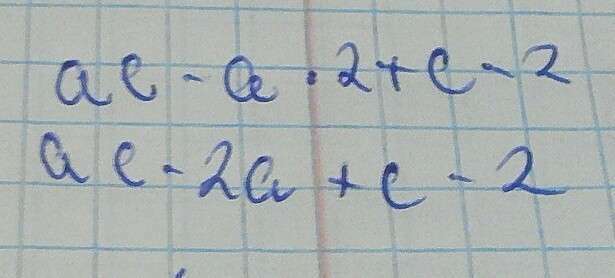 ac - a · 2 + c - 2
ac - 2a + c - 2